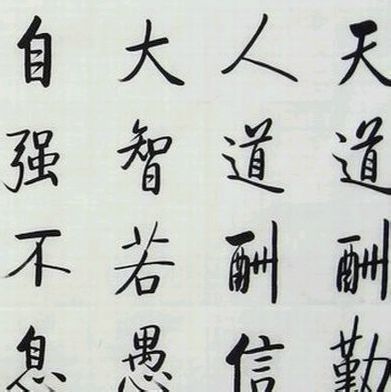 天道酬勤
人道酬信
大智若愚
自强不息